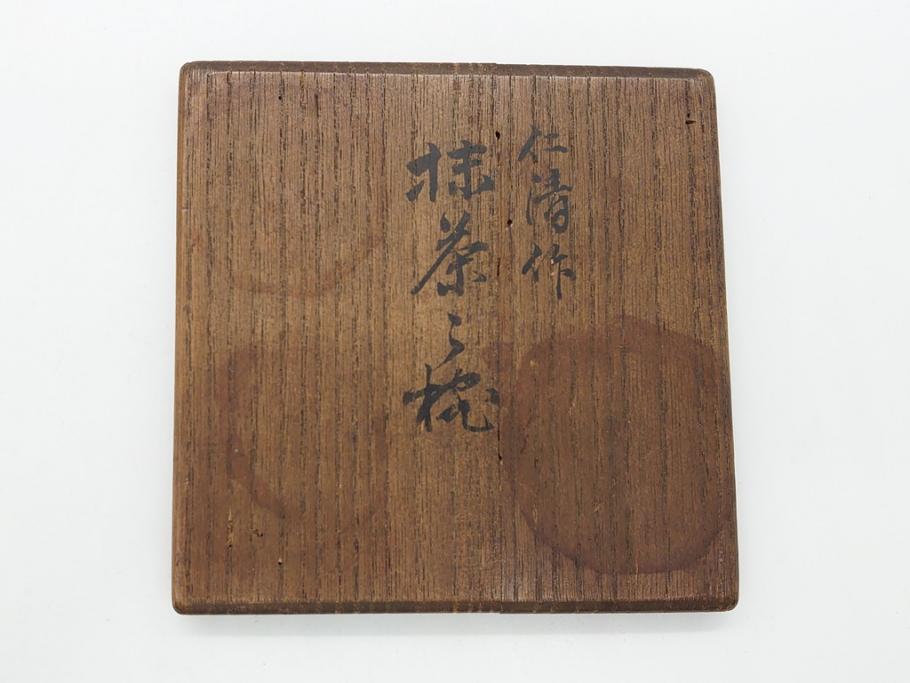 仁清作
抹茶々椀